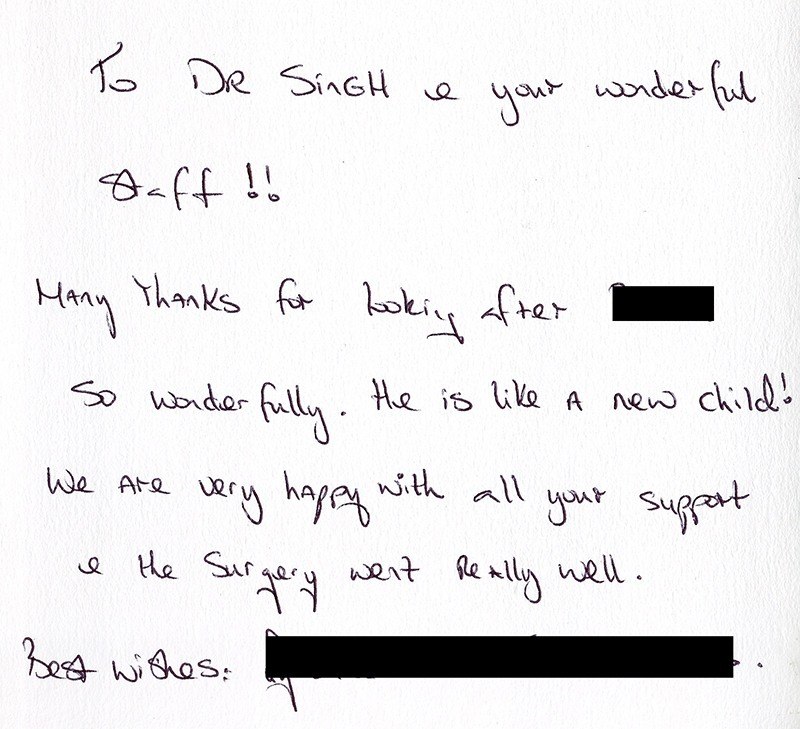 To DR SinGH & your wonderful
Staff!!
Many Thanks for looking after
So wonderfully. He is like A new child!
We Are very happy with all your support
& the Surgery went Really well.
Best wishes: